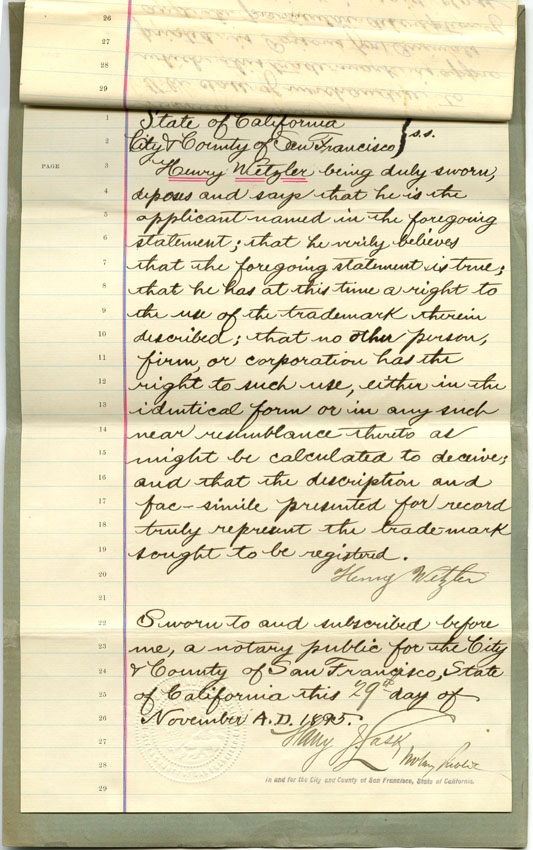 26
27
28
29
1 State of California
2 City & County of San Francisco } s.s.
PAGE 3 Henry Wetzler being duly sworn,
4 deposes and says that he is the
5 applicant named in the foregoing
6 statement; that he verily believes
7 that the foregoing statement is true;
8 that he has at this time a right to
9 the use of the trademark therein
10 described; that no other person,
11 firm, or corporation has the
12 right to such use, either in the
13 identical form or in any such
14 near resemblance thereto as
15 might be calculated to deceive;
16 and that the description and
17 fac-simile presented for record
18 truly represent the trade-mark
19 sought to be registered.
20 Henry Wetzler
21
22 Sworn to and subscribed before
23 me, a notary public for the City
24 & County of San Francisco, State
25 of California this 29th day of
26 November A.D. 1895.
27 Harry J. Lask
28 Notary Public
In and for the City and County of San Francisco, State of California.
29